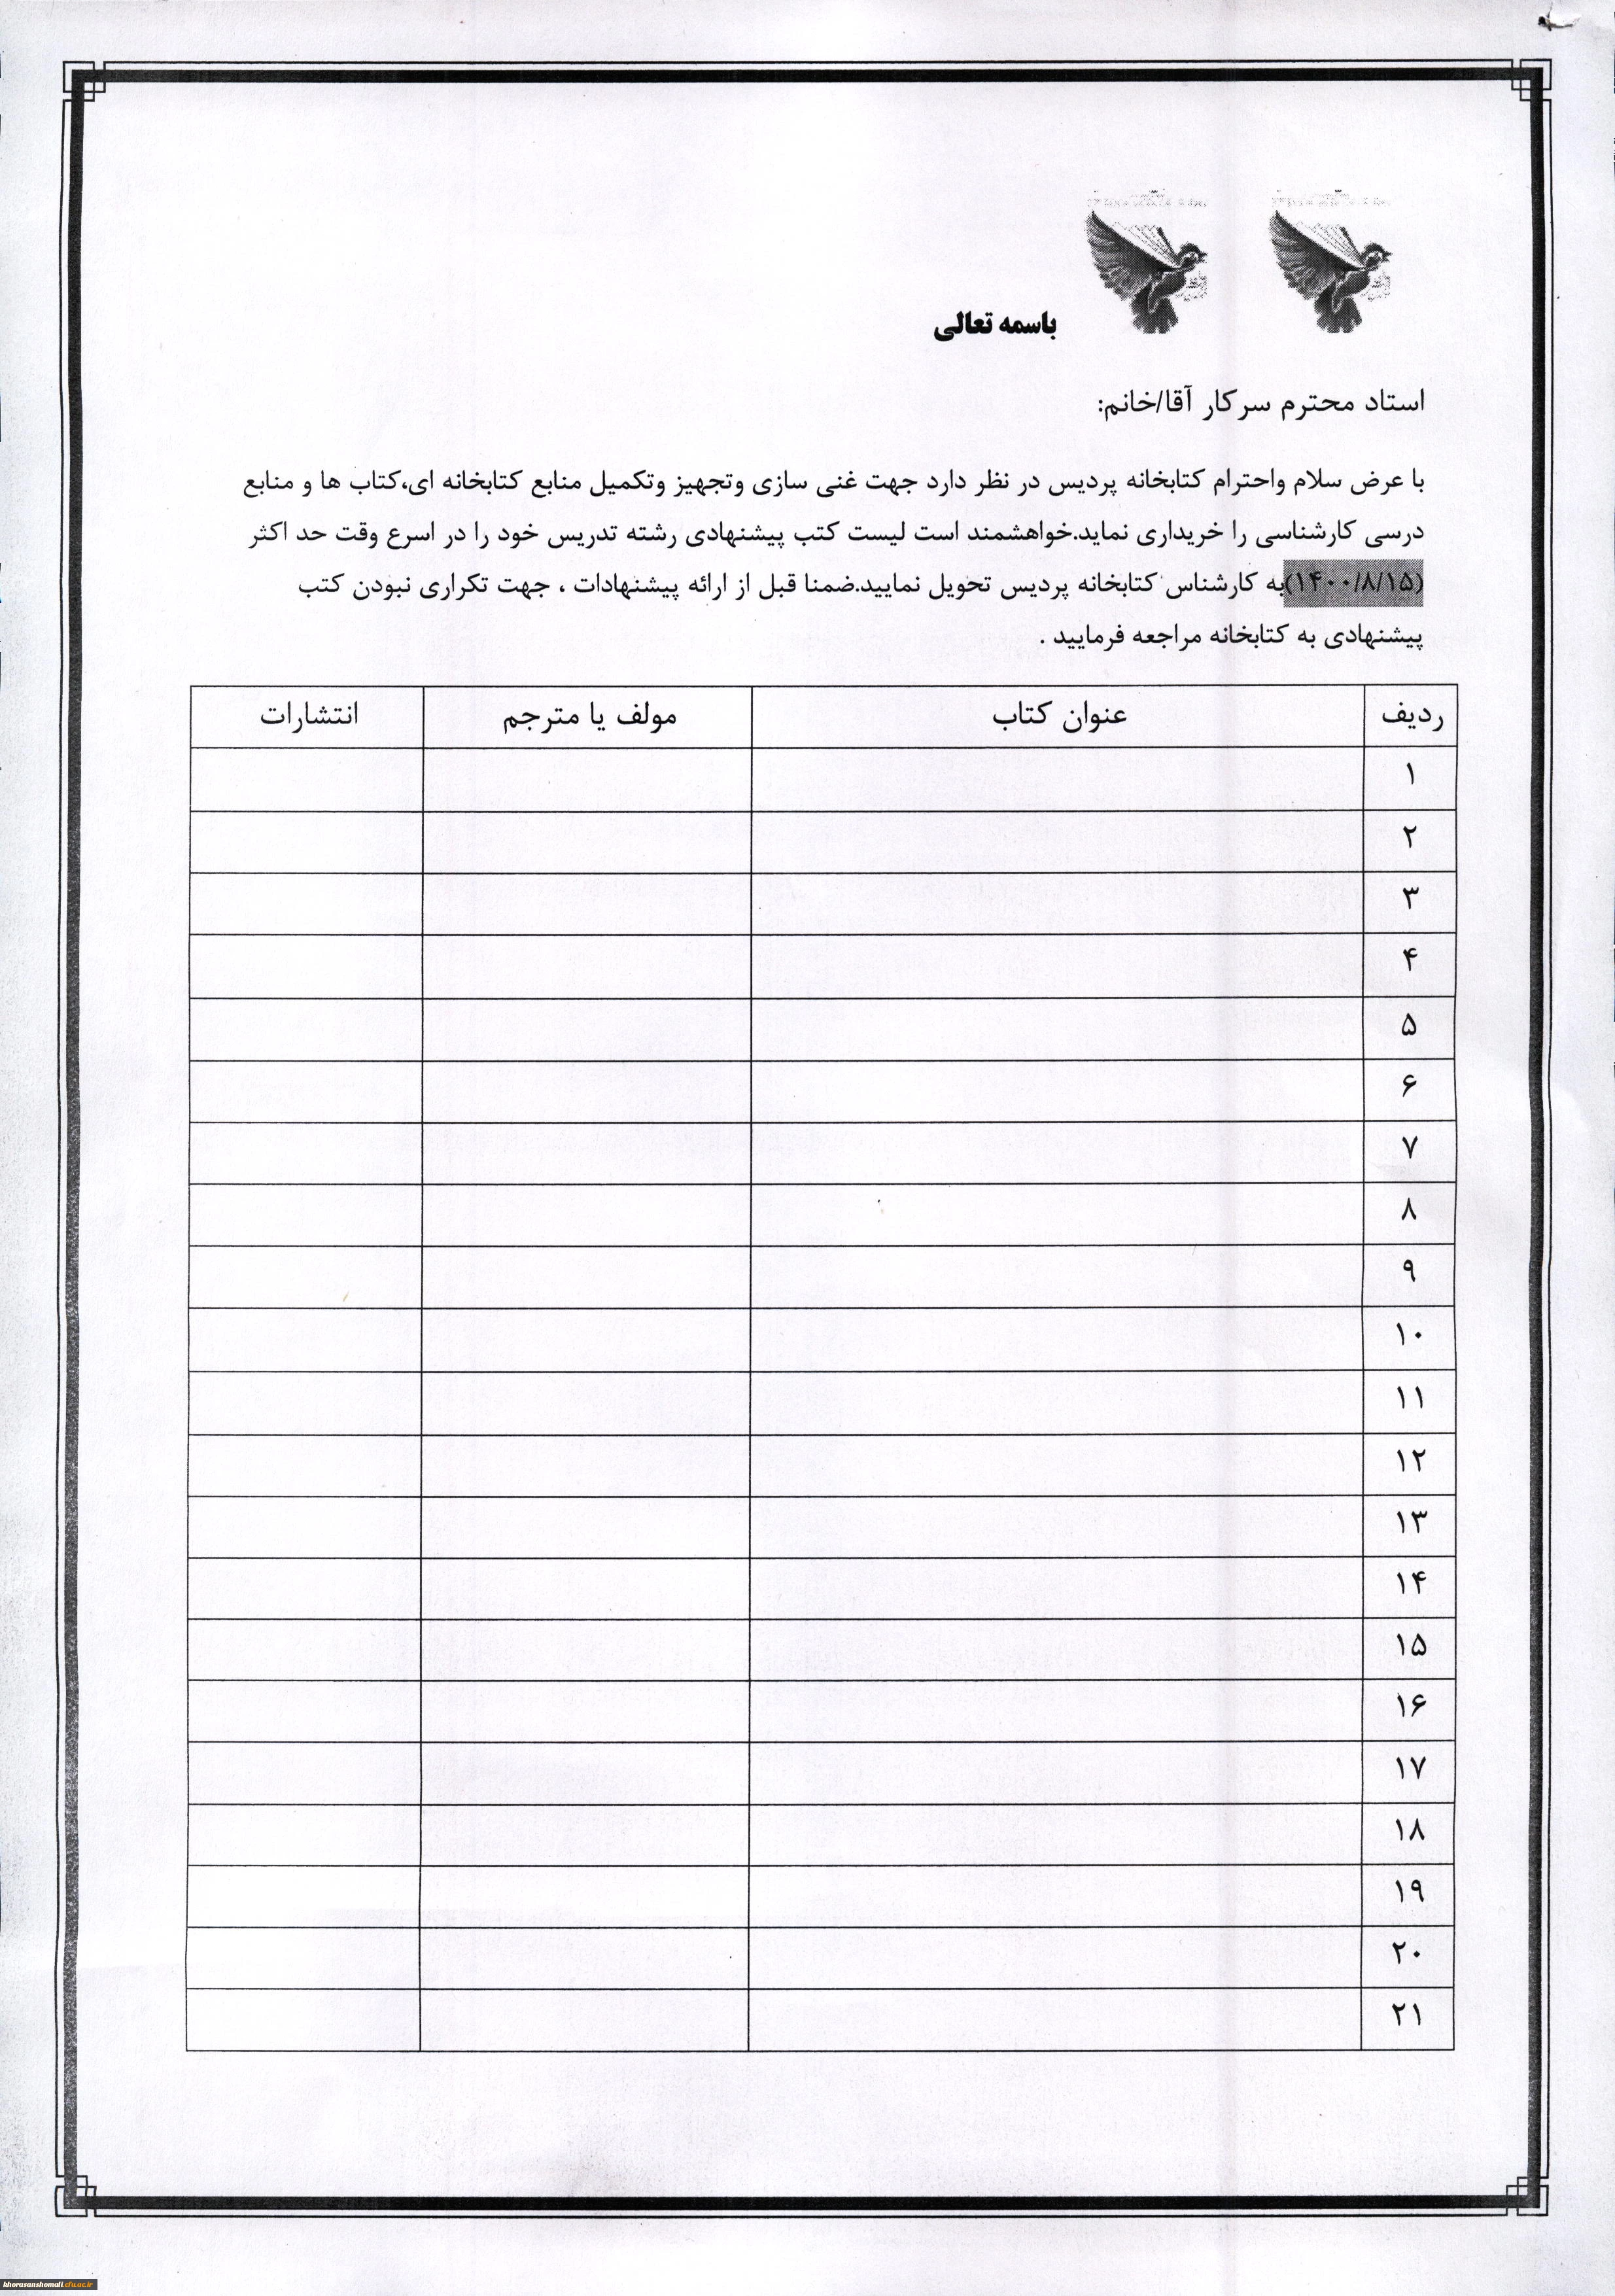 باسمه تعالی
استاد محترم سرکار آقا/خانم:
با عرض سلام واحترام کتابخانه پردیس در نظر دارد جهت غنی سازی وتجهیز وتکمیل منابع کتابخانه ای،کتاب ها و منابع
درسی کارشناسی را خریداری نماید.خواهشمند است لیست کتب پیشنهادی رشته تدریس خود را در اسرع وقت حد اکثر
(۱۴۰۰/۸/۱۵)به کارشناس کتابخانه پردیس تحویل نمایید.ضمنا قبل از ارائه پیشنهادات ، جهت تکراری نبودن کتب
پیشنهادی به کتابخانه مراجعه فرمایید .
ردیف عنوان کتاب مولف یا مترجم انتشارات
۱
۲
۳
۴
۵
۶
۷
۸
۹
۱۰
۱۱
۱۲
۱۳
۱۴
۱۵
۱۶
۱۷
۱۸
۱۹
۲۰
۲۱
khorasanshomali.cfu.ac.ir